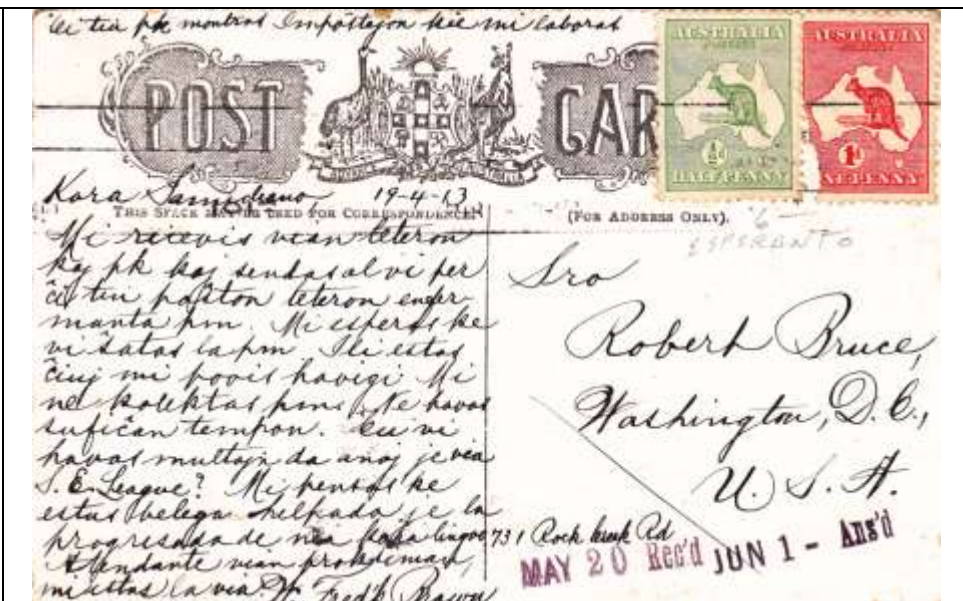 tiu pk montras Impostejon kie mi laboras
POST CARD
AUSTRALIA
POSTAGE
½D
HALFPENNY
AUSTRALIA
POSTAGE
1D
ONE PENNY
Kara Samideano, 19-4-13
THIS SPACE MAY BE USED FOR CORRESPONDENCE.
Mi ricevis vian leteron
kaj pk kaj sendas al vi per
ĉi tiu poŝto leteron enfer-
manta pm. Mi esperas ke
vi ŝatas la pm. Ili estas
ĉiuj mi povis havigi Mi
ne kolektas pmn. Ne havas
sufiĉan tempon. Ĉu vi
havas multajn da anoj je via
S. E. League? Mi pensas ke
estus belega helpado je la
progresado de nia kara lingvo
Atendante vian proksiman,
mi estas la via. Dr Fredk
(FOR ADDRESS ONLY).
6
ESPERANTO
Sro
Robert Bruce,
Washington, D.C.,
U. S. A.
731 Rock Creek Rd
MAY 20 Rec'd JUN 1 - Ans'd